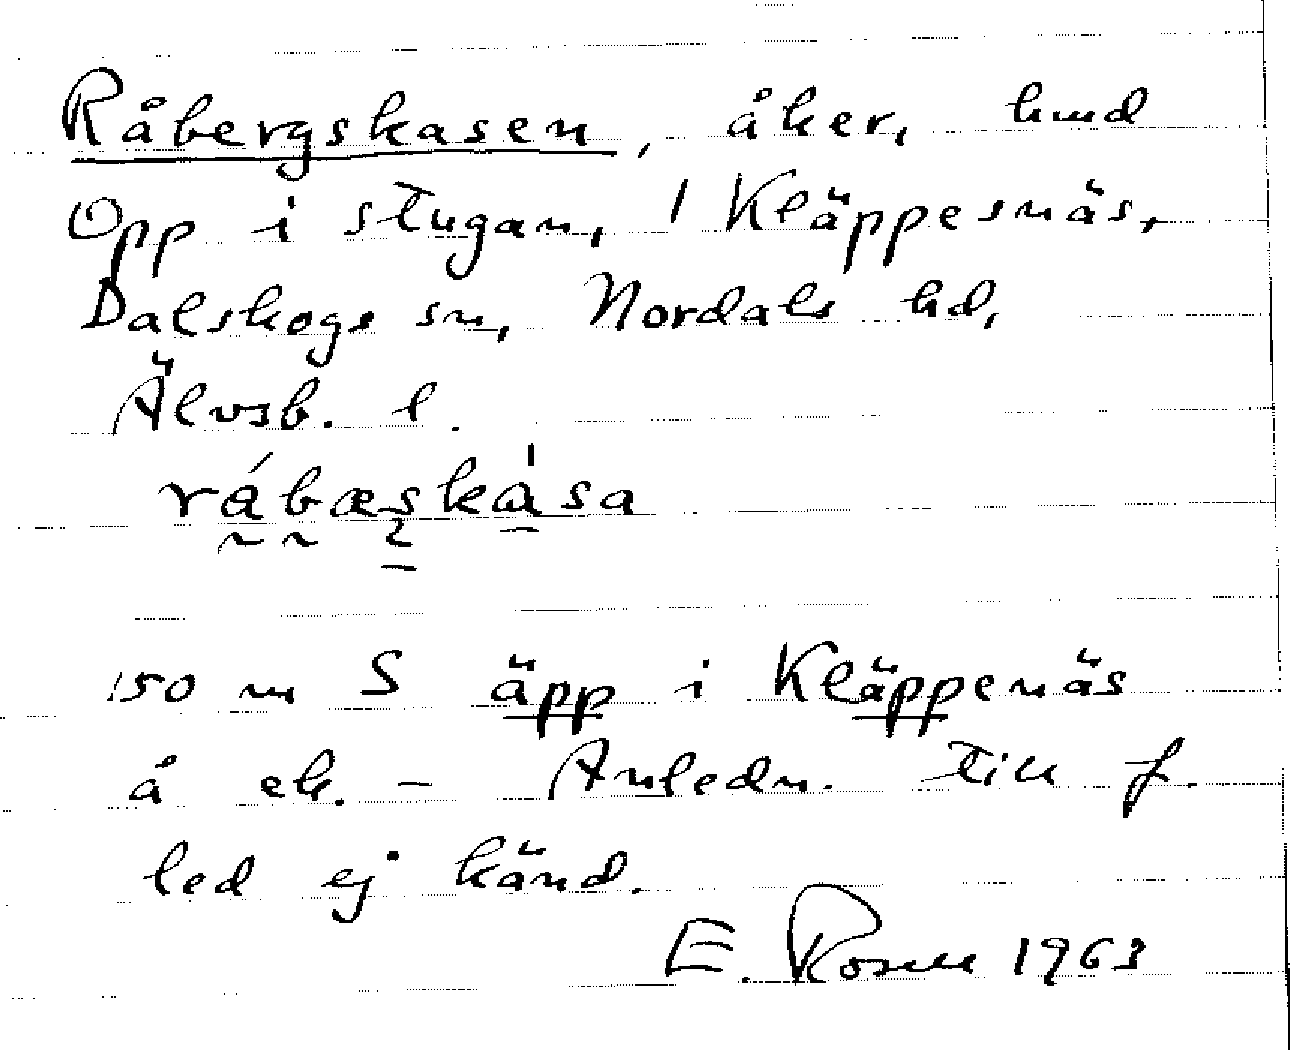 Råbergskasen, åker, hmd
Opp i stugan, 1 Kläppesnäs,
Dalskogs sn, Nordals hd,
Älvsb. l.
rábæskåsa
150 m S äpp i Kläppenäs
å ek. - Anledn. till f.
led ej känd.
E. Rosell 1963